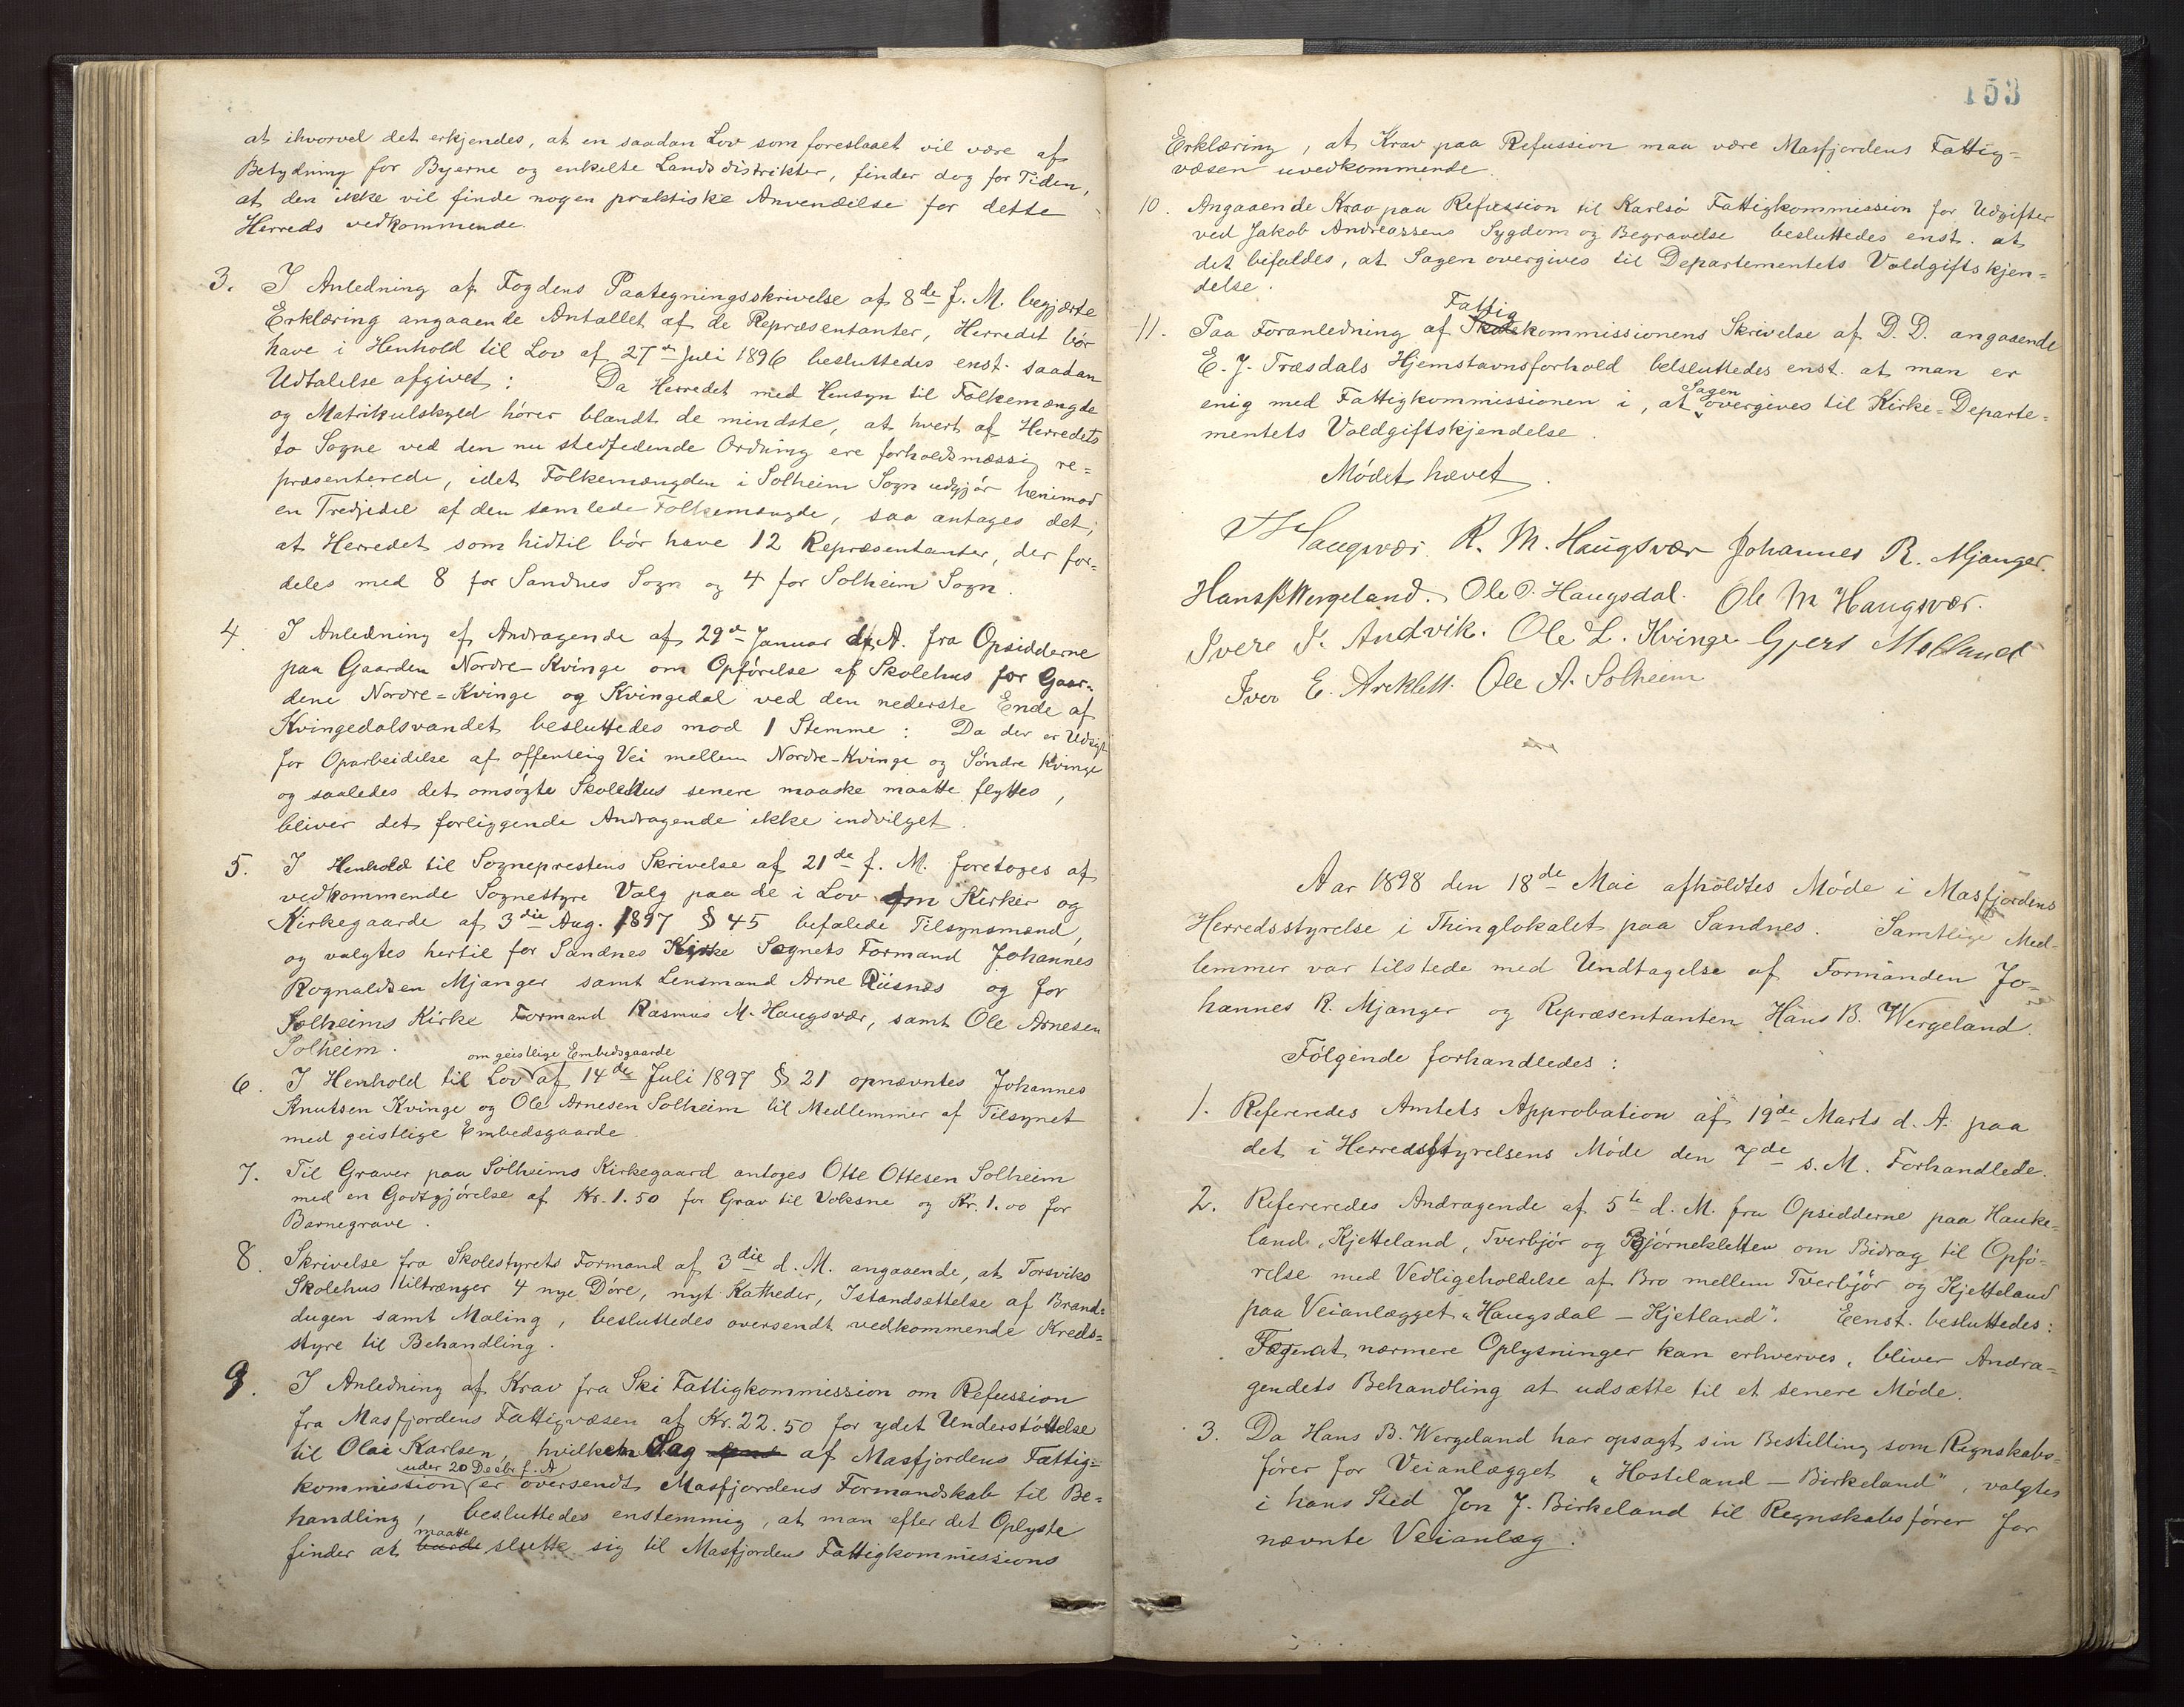 at ihvorvel det erkjendes, at en saadan Lov som foreslaaet vil være af
Betydning for Byerne og enkelte Landsdistrikter, finder dog for Tiden,
at den ikke vil finde nogen praktiske Anvendelse for dette
Herreds vedkommende.
3. I Anledning af Fogdens Paategningsskrivelse af 8de f. M. begjærte
Erklæring angaaende Antallet af de Repræsentanter, Herredet bör
have i Henhold til Lov af 27de Juli 1896 besluttedes enst. saadan
Udtalelse afgivet: Da Herredet med Hensyn til Folkemængde
og Matrikulskyld hörer blandt de mindste, at hvert af Herredets
to Sogne ved den nu stedfedende Ordning ere forholdsmæssig re=
præsenterede, idet Folkemængden i Solheim Sogn udgjör henimod
en Tredjedel af den samlede Folkemængde, saa antages det,
at Herredet som hidtil bör have 12 Repræsentanter, der for=
deles med 8 for Sandnes Sogn og 4 for Solheim Sogn.
4. I Anledning af Andragende af 29de Januar d. A. fra Opsidderne
paa Gaarden Nordre Kvinge om Opförelse af Skolehus for Gaar=
dene Nordre=Kvinge og Kvingedal ved den nederste Ende af
Kvingedalsvandet besluttedes mod 1 Stemme: Da der er Udsigt
for Oparbeidelse af offentlig Vei mellem Nordre-Kvinge og Söndre Kvinge
og saaledes det omsögte Skolehus senere maaske maatte flyttes,
bliver det forliggende Andragende ikke indvilget.
5. I Henhold til Sogneprestens Skrivelse af 21de f. M. foretoges af
vedkommende Sognestyre Valg paa de i Lov om Kirker og
Kirkegaarde af 3die Aug. 1897 § 45 befalede Tilsynsmænd,
og valgtes hertil for Sandnes Kirke Sognets Formand Johannes
Rognaldsen Mjanger samt Lensmand Arne Riisnæs og for
Solheims Kirke Formand Rasmus M. Haugsvær, samt Ole Arnesen
Solheim.
om geistlige Embedsgaarde
6. I Henhold til Lov af 14de Juli 1897 § 21 opnævntes Johannes
Knutsen Kvinge og Ole Arnesen Solheim til Medlemmer af Tilsynet
med geistlige Embedsgaarde.
7. Til Graver paa Solheims Kirkegaard antoges Otte Ottesen Solheim
med en Godtgjörelse af Kr. 1.50 for Grav til Voksne og Kr. 1.00 for
Barnegrave.
8. Skrivelse fra Skolestyrets Formand af 3die d. M. angaaende, at Torsviks
Skolehus tiltrænger 4 nye Döre, nyt Katheder, Istandsættelse af Brand=
dugen samt Maling, besluttedes oversendt vedkommende Kreds=
styre til Behandling.
9. I Anledning af Krav fra Ski Fattigkommission om Refussion
fra Masfjordens Fattigvæsen af Kr. 22.50 for ydet Understöttelse
til Olai Karlsen, hvilken Sag af Masfjordens Fattig=
under 20 Decbr f. A
kommission er oversendt Masfjordens Formandskab til Be=
handling, besluttedes enstemmig, at man efter det Oplyste
maatte
finder at burde slutte sig til Masfjordens Fattigkommissions
153
Erklæring, at Krav paa Refussion maa være Masfjordens Fattig=
væsen uvedkommende.
10. Angaaende Krav paa Refussion til Karlsö Fattigkommission for Udgifter
ved Jakob Andreassens Sygdom og Begravelse besluttedes enst. at
det bifaldes, at Sagen overgives til Departementets Voldgiftskjen=
delse.
Fattig
11. Paa Foranledning af Skolekommissionens Skrivelse af D. D. angaaende
E. J. Træsdals Hjemstavnsforhold belsluttedes enst. at man er
Sagen
enig med Fattigkommissionen i, at overgives til Kirke=Departe=
mentets Voldgiftskjendelse.
Mödet hævet.
Haugsvær R. M. Haugsvær Johannes R. Mjanger.
Hans B Wergeland. Ole O. Haugsdal. Ole M Haugsvær.
Ivers I. Andvik. Ole L. Kvinge Gjert Molland
Iver E. Areklett. Ole A. Solheim
Aar 1898 den 18de Mai afholdtes Möde i Masfjordens
Herredsstyrelse i Thinglokalet paa Sandnes. Samtlige Med-
lemmer var tilstede med Undtagelse af Formanden Jo-
hannes R. Mjanger og Repræsentanten Hans B. Wergeland.
Fölgende forhandledes:
1. Refereredes Amtets Approbation af 19de Marts d. A. paa
det i Herredsstyrelsens Möde den 7de s. M. Forhandlede.
2. Refereredes Andragende af 5te d. M. fra Opsidderne paa Hauke-
land, Kjetteland, Tverbjör og Björnekletten om Bidrag til Opfö-
relse med Vedligeholdelse af Bro mellem Tverbjör og Kjetteland
paa Veianlægget „Haugsdal — Kjetland". Eenst. besluttedes:
Forat nærmere Oplysninger kan erhverves, bliver Andra=
gendets Behandling at udsætte til et senere Möde.
3. Da Hans B. Wergeland har opsagt sin Bestilling som Regnskabs=
förer for Veianlægget „Hosteland — Birkeland", valgtes
i hans Sted Jon J. Birkeland til Regnskabsförer for
nævnte Veianlæg.